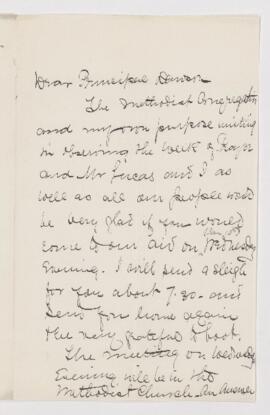 Dear Principal Dawson
The Methodist Congregation
and my own purpose uniting
in observing the week of Prayer
and Mr Lucas and I as
well as all our people would
be very glad if you would
come to our aid on Wednesday
Evening. I will send a sleigh
for you about 7.30 and
send you home again
The meeting on Wednesday
Evening will be in the
Methodist Church. An answer